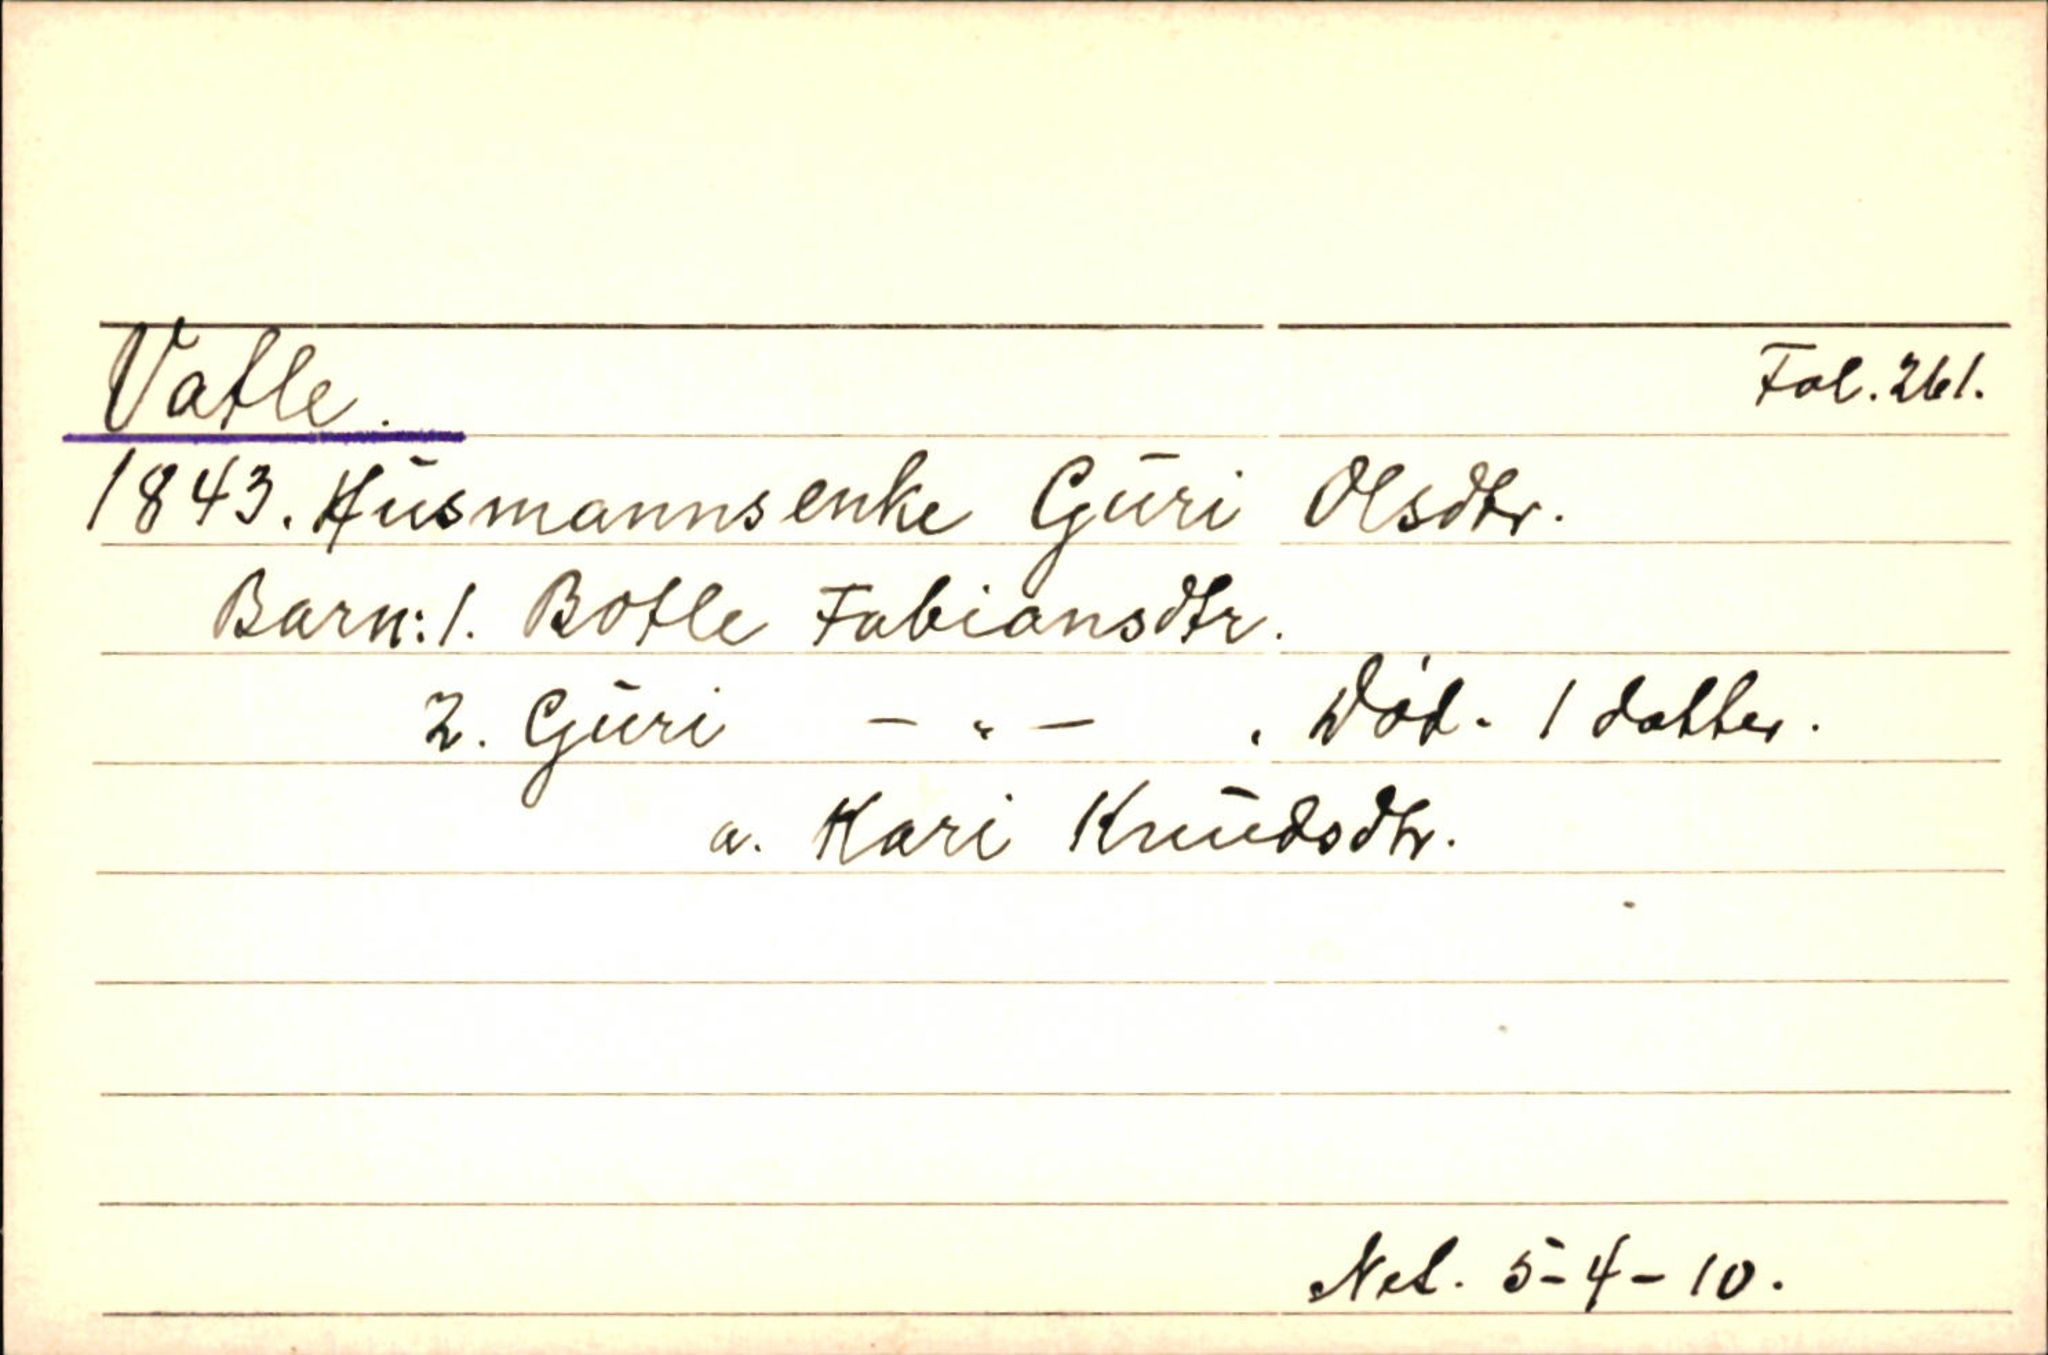 Vatle. Fol. 261.
1843. Husmannsenke Guri Olsdtr.
Barn: 1. Botle Fabiansdtr.
2. Guri — " — . Död. 1 datter.
a. Kari Knudsdtr.
Net. 5-4-10.